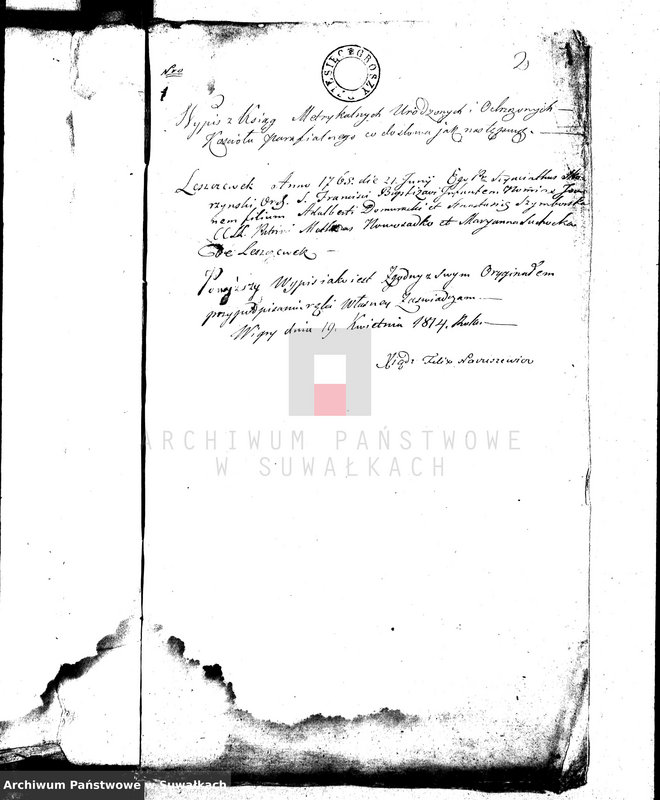 2
DZIESIĘĆ GROSZY
Nro
1
Wypis z Ksiąg Metrykalnych Urodzonych i Ochrzczonych
Kościoła Parafialnego co do słowa jak następuje.
Leszczewek Anno 1765. die 21 Junij Ego Pr Hyacinthus
Ord. S. Francisci Baptizavi Infantem Nomine Joan
nem filium Adalberti et Anastasia Szymborska
Patrini Mathias Nowosadko et Maryanna Suchocka
De Leszczewek
Powyższy Wypis jako iest Zgodny z swym Oryginałem
przy podpisaniu ręki własney Zaświadczam
Wigry dnia 19. Kwietnia 1814. Roku.
Xiądz Felix Naruszewicz
ARCHIWUM PAŃSTWOWE
W SUWAŁKACH
Archiwum Państwowe w Suwałkach